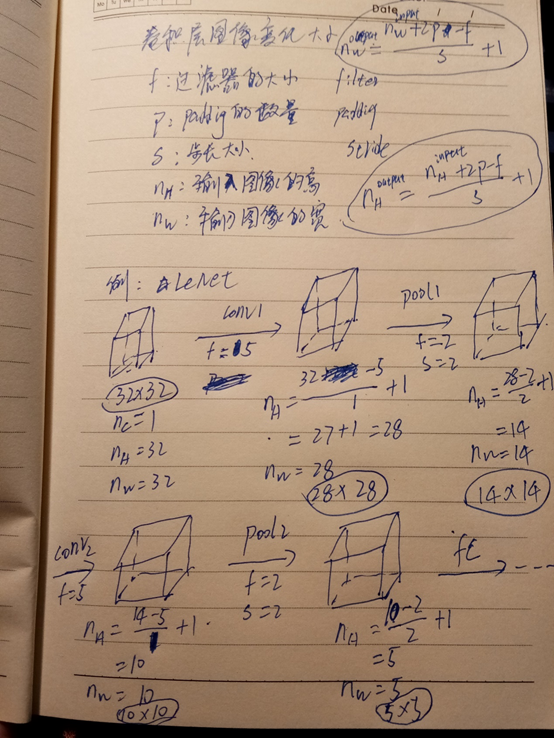 Date
卷积层图像变化大小
n_W^output = (n_W^input + 2p - f) / s + 1
f：过滤器的大小 filter
p：padding的数量 padding
s：步长大小 stride
n_H：输入图像的高
n_H^output = (n_H^input + 2p - f) / s + 1
n_W：输入图像的宽
例： LeNet
conv1
f = 5
pool1
f = 2
s = 2
32×32
n_c = 1
n_H = 32
n_W = 32
n_H = (32 - 5) / 1 + 1
= 27 + 1 = 28
n_W = 28
28 × 28
n_H = (28 - 2) / 2 + 1
= 14
n_W = 14
14 × 14
conv2
f = 5
pool2
f = 2
s = 2
fc
n_H = (14 - 5) / 1 + 1
= 10
n_W = 10
10 × 10
n_H = (10 - 2) / 2 + 1
= 5
n_W = 5
5 × 5